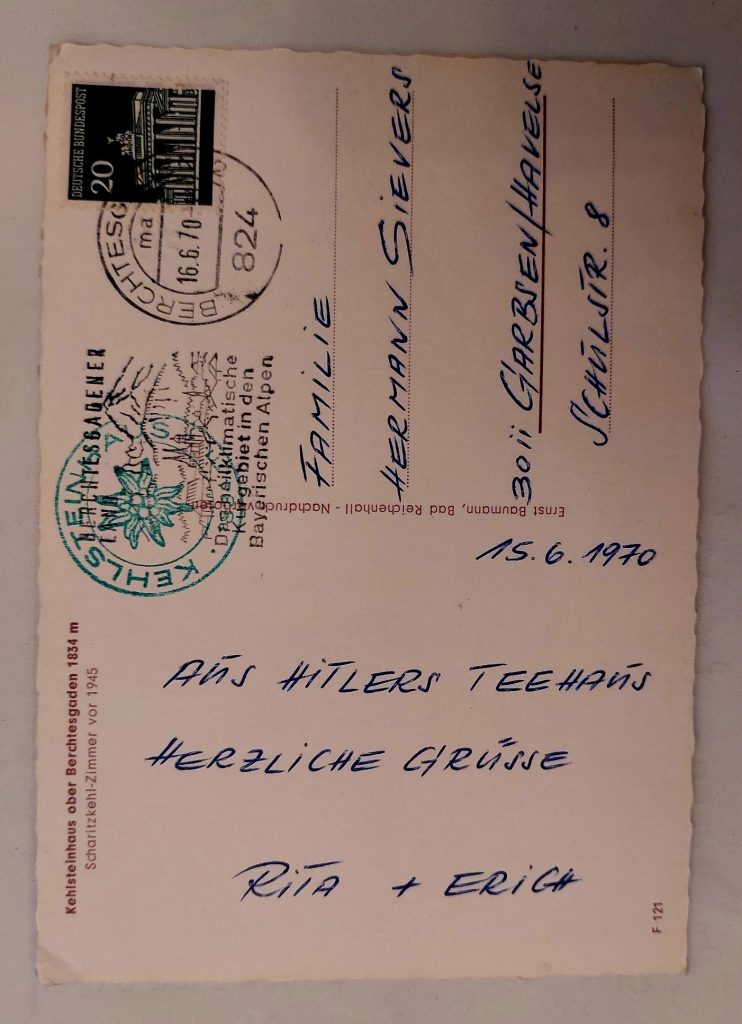 Kehlsteinhaus ober Berchtesgaden 1834 m
Scharitzkehl-Zimmer vor 1945
15.6.1970
AUS HITLERS TEEHAUS
HERZLICHE GRÜSSE
RITA + ERICH
F 121
Ernst Baumann, Bad Reichenhall - Nachdruck verboten
KEHLSTEIN
BERCHTESGADENER
LAND
Das heilklimatische
Kurgebiet in den
Bayerischen Alpen
16.6.70
ma
824
DEUTSCHE BUNDESPOST
20
FAMILIE
HERMANN SIEVERS
3011 GARBSEN/HAVELSE
SCHULSTR. 8